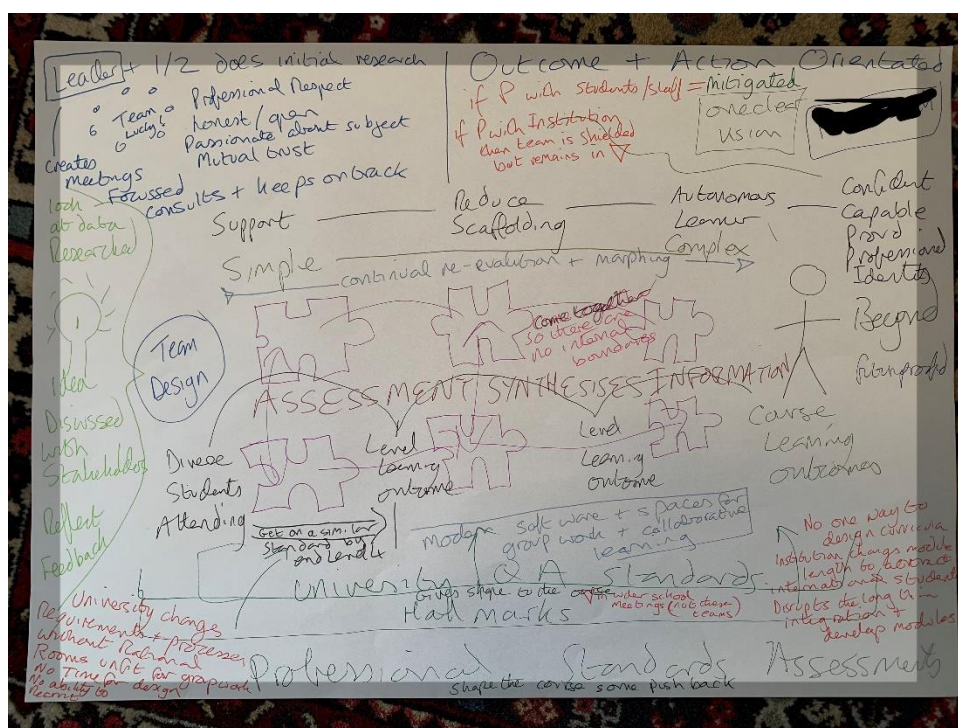 Leader + 1/2 does initial research
Team
Professional Respect
honest/open
Passionate about subject
Mutual trust
creates
meetings
Focussed
consults + keeps on track
Outcome + Action Orientated
if P with students/staff = mitigated
if P with Institution
then team is shielded
but remains in
one clear
vision
look
at data
Researched
idea
Discussed
with
Stakeholders
Reflect
Feedback
Support
Reduce
Scaffolding
Autonomous
Learner
Confident
Capable
Proud
Professional
Identity
Beyond
Simple
Complex
continual re-evalution + morphing
Come together
so there are
no internal
boundaries
Team
Design
ASSESSMENT SYNTHESISES INFORMATION
Diverse
Students
Attending
Level
Learning
outcome
Level
Learning
outcome
Course
Learning
outcomes
Get on a similar
standard by
end Level 4
modern software + spaces for
group work + collaborative
learning
No one way to
design curricula
Institution change module
length to attract
international students
Disrupts the long
integration +
develop modules
University QA Standards
Gives shape to the course
Hall marks
in wider school
meetings (not these
teams)
University changes
Requirements + processes
without Rational
Rooms unfit for groupwork
No Time for design
No ability to
Recruit
Professional Standards Assessments
shape the course some push back